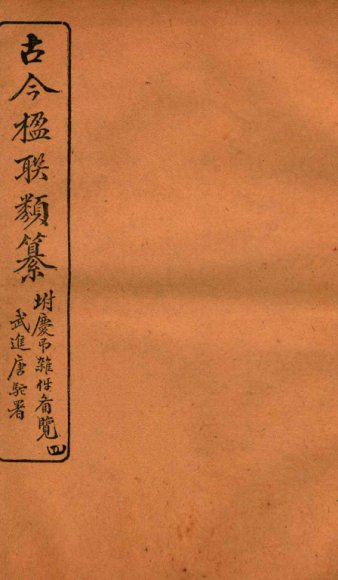 古今楹联類纂
坿慶弔雜件备覽 四
武進唐駝署